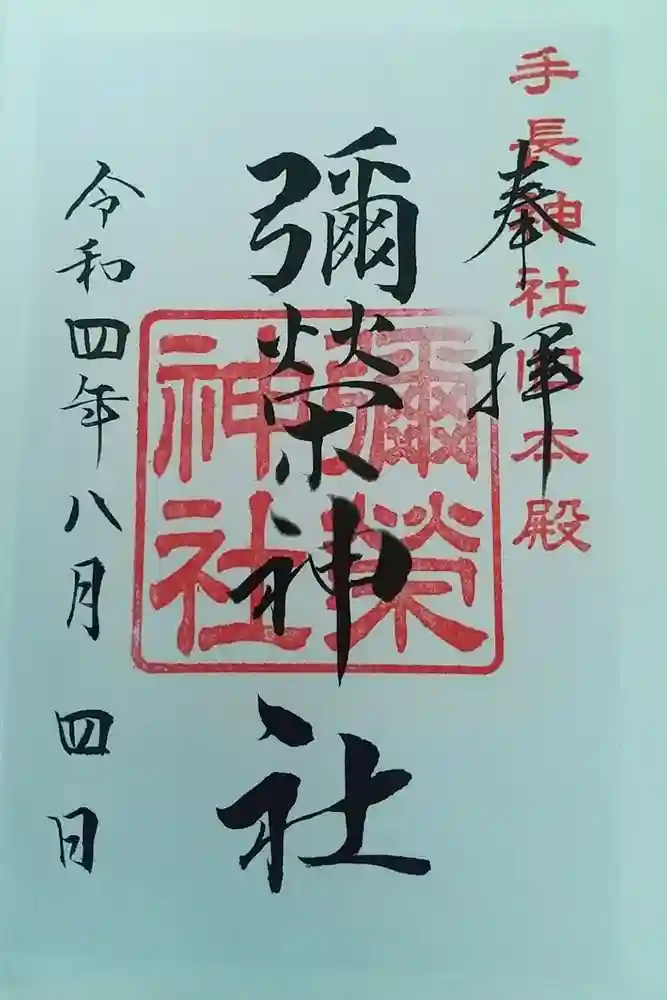 手長神社 本殿
奉拝
彌榮神社
彌榮
神社
令和四年八月四日